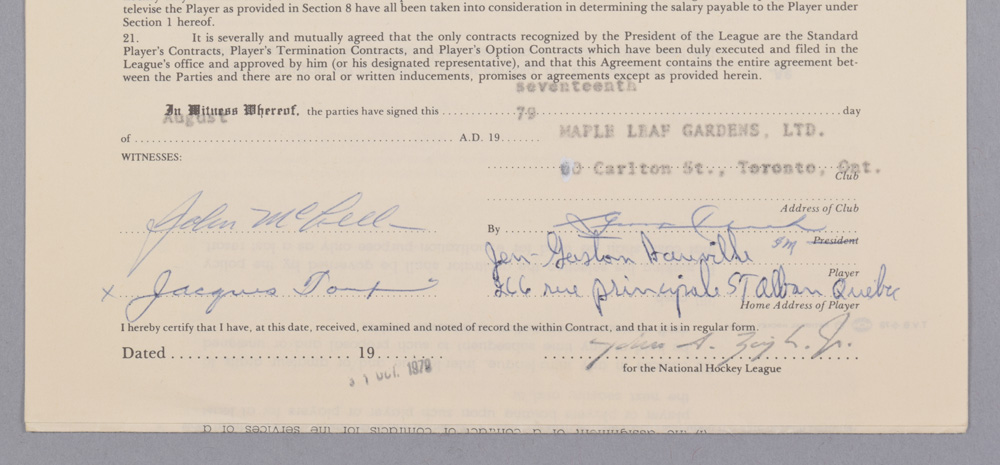 televise the Player as provided in Section 8 have all been taken into consideration in determining the salary payable to the Player under
Section 1 hereof.
21. It is severally and mutually agreed that the only contracts recognized by the President of the League are the Standard
Player's Contracts, Player's Termination Contracts, and Player's Option Contracts which have been duly executed and filed in the
League's office and approved by him (or his designated representative), and that this Agreement contains the entire agreement bet-
ween the Parties and there are no oral or written inducements, promises or agreements except as provided herein.
seventeenth
In Witness Whereof, the parties have signed this day
August 79
of A.D. 19
MAPLE LEAF GARDENS, LTD.
WITNESSES:
60 Carlton St., Toronto, Ont.
Club
Address of Club
John McLellan
By
GM President
Jen-Gaston Dauville
Player
x Jacques
266 rue principale ST Alban Quebec
Home Address of Player
I hereby certify that I have, at this date, received, examined and noted of record the within Contract, and that it is in regular form.
Dated 19
John A. Ziegler Jr.
for the National Hockey League
OCT. 1979